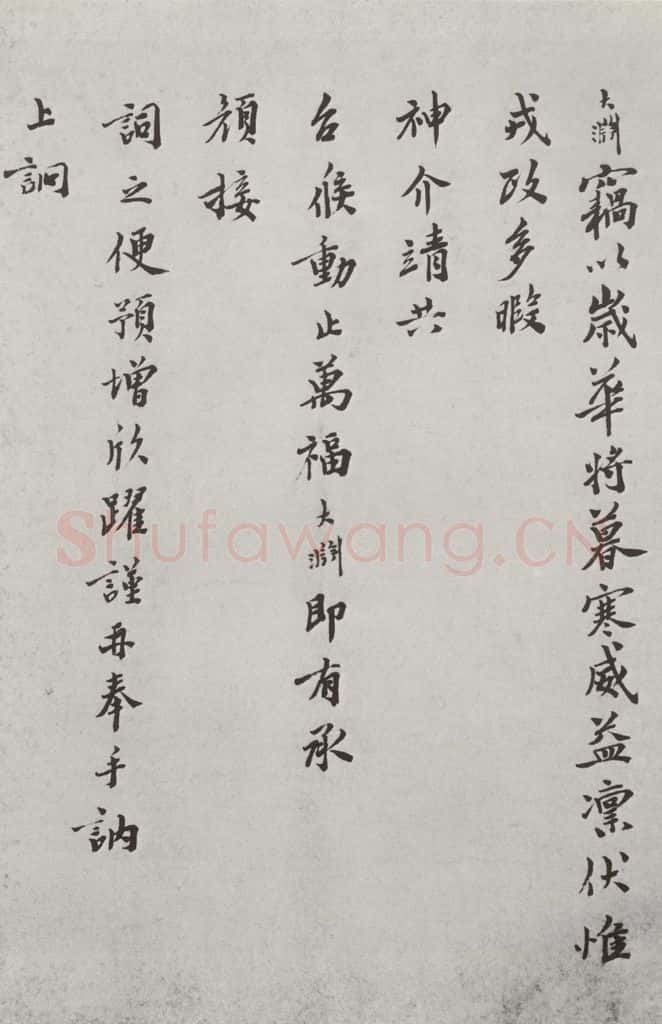 大淵竊以歲華將暮寒威益凛伏惟
戎政多暇
神介靖共
台候動止萬福大淵即有承
顏接
詞之便預增欣躍謹再奉手訥
上
Shufawang.CN